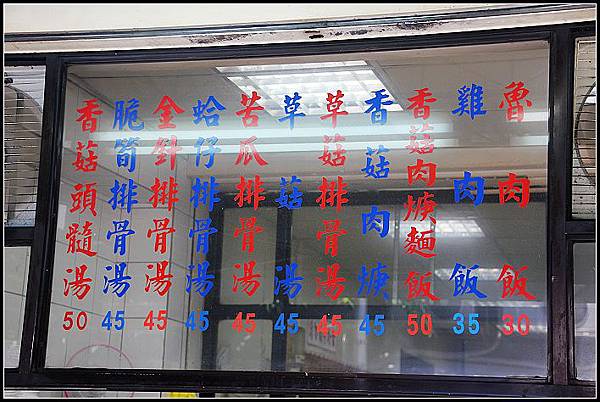 魯肉飯30
雞肉飯35
香菇肉焿麵飯50
香菇肉焿45
草菇排骨湯45
草菇湯45
苦瓜排骨湯45
蛤仔排骨湯45
金針排骨湯45
脆筍排骨湯45
香菇頭髓湯50